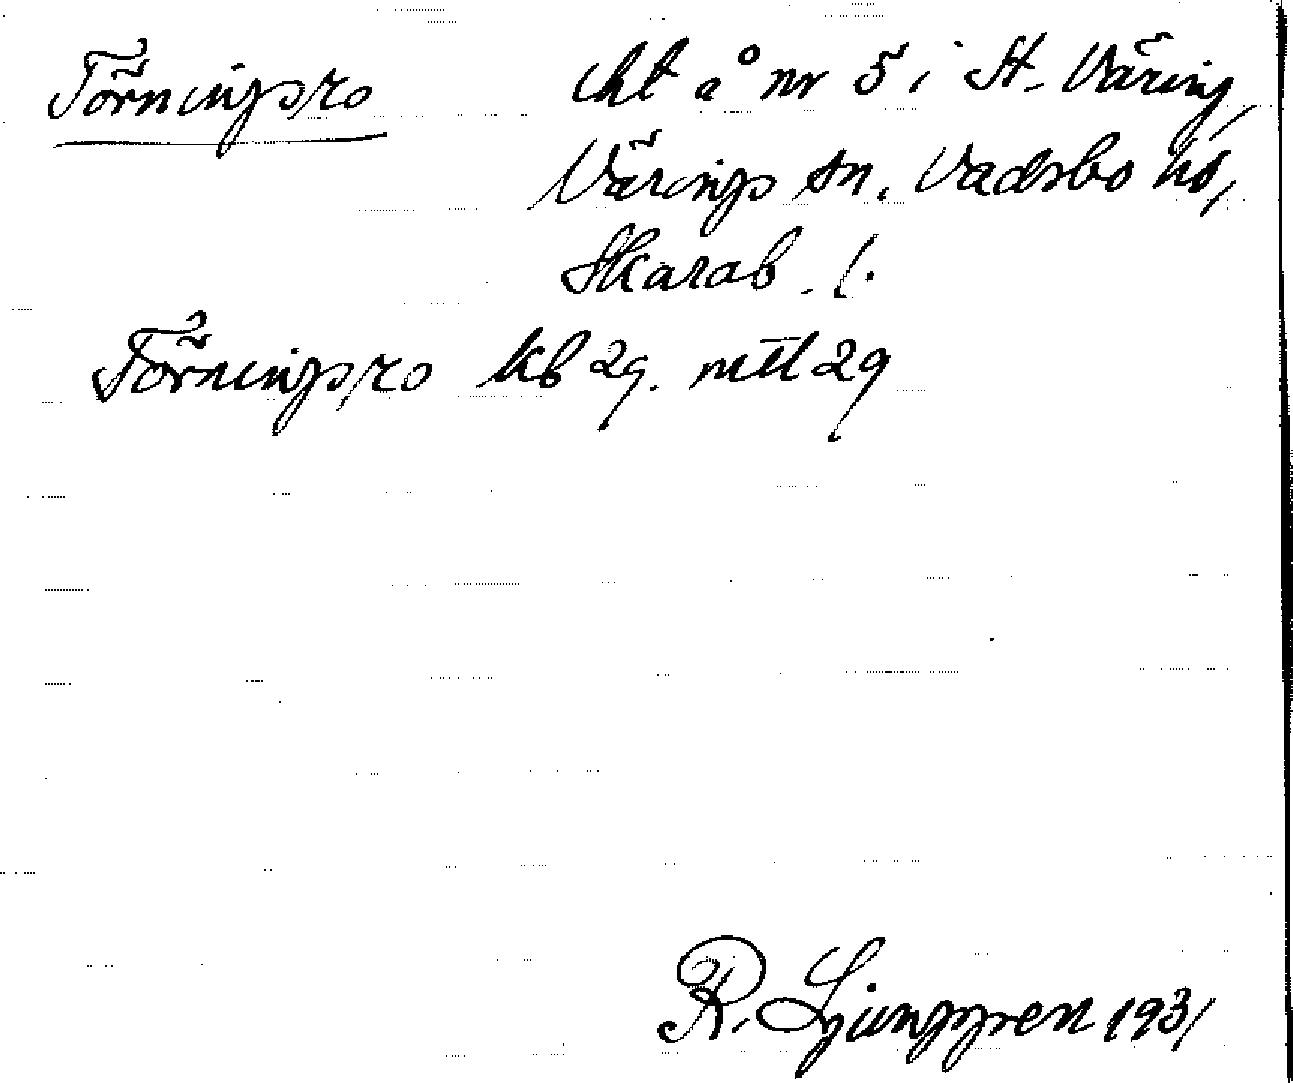 Törningsro lht å nr 5 i St. Väring,
Värings sn. Vadsbo hd,
Skarab. l.
Törningsro kb 29. mtl 29
R. Ljunggren 1931